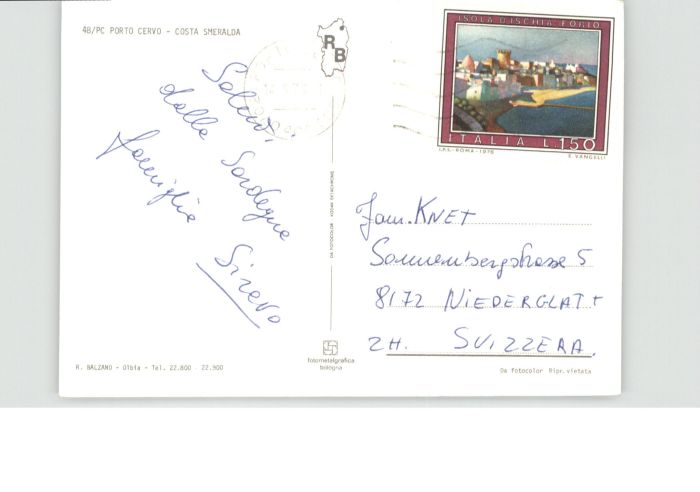 4B/PC PORTO CERVO - COSTA SMERALDA
RB
ISOLA D'ISCHIA-FORIO
ITALIA L.150
I.P.S.-ROMA-1976
E. VANGELLI
Saluti
dalla Sardegna
famiglia
Fam. KNET
Sonnenbergstrasse 5
8172 NIEDERGLATT
ZH. SVIZZERA.
DA FOTOCOLOR KODAK EKTACHROME
fotometalgrafica
bologna
R. BALZANO - Olbia - Tel. 22.800 - 22.900
Da fotocolor Ripr. vietata